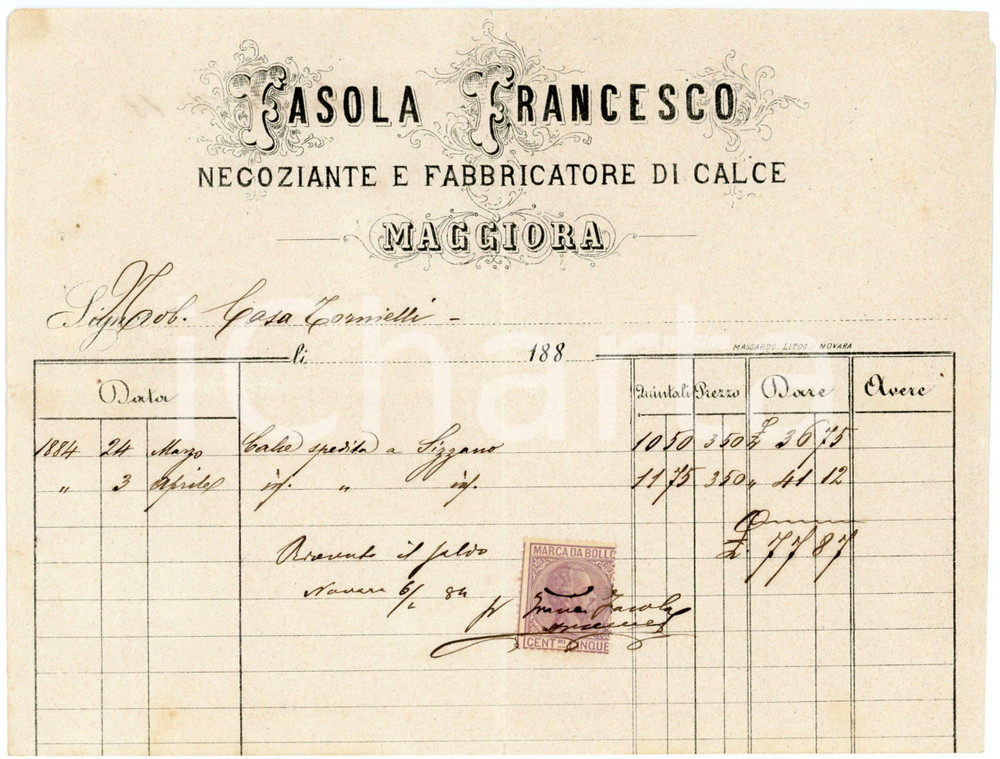 FASOLA FRANCESCO
NEGOZIANTE E FABBRICATORE DI CALCE
MAGGIORA
Sign Nob. Casa Tornielli -
MASSARDO LITOG. NOVARA
li 188
Data Quintali Prezzo Dare Avere
1884 24 Marzo Calce spedita a Sizzano 10 50 3 50 £ 36 75
" 3 Aprile id. " id. 11 75 3 50 " 41 12
£. 77 87
Ricevuto il saldo
Novara 6/ 84
MARCA DA BOLLO
Fasola
CENT.MI CINQUE
iCharta